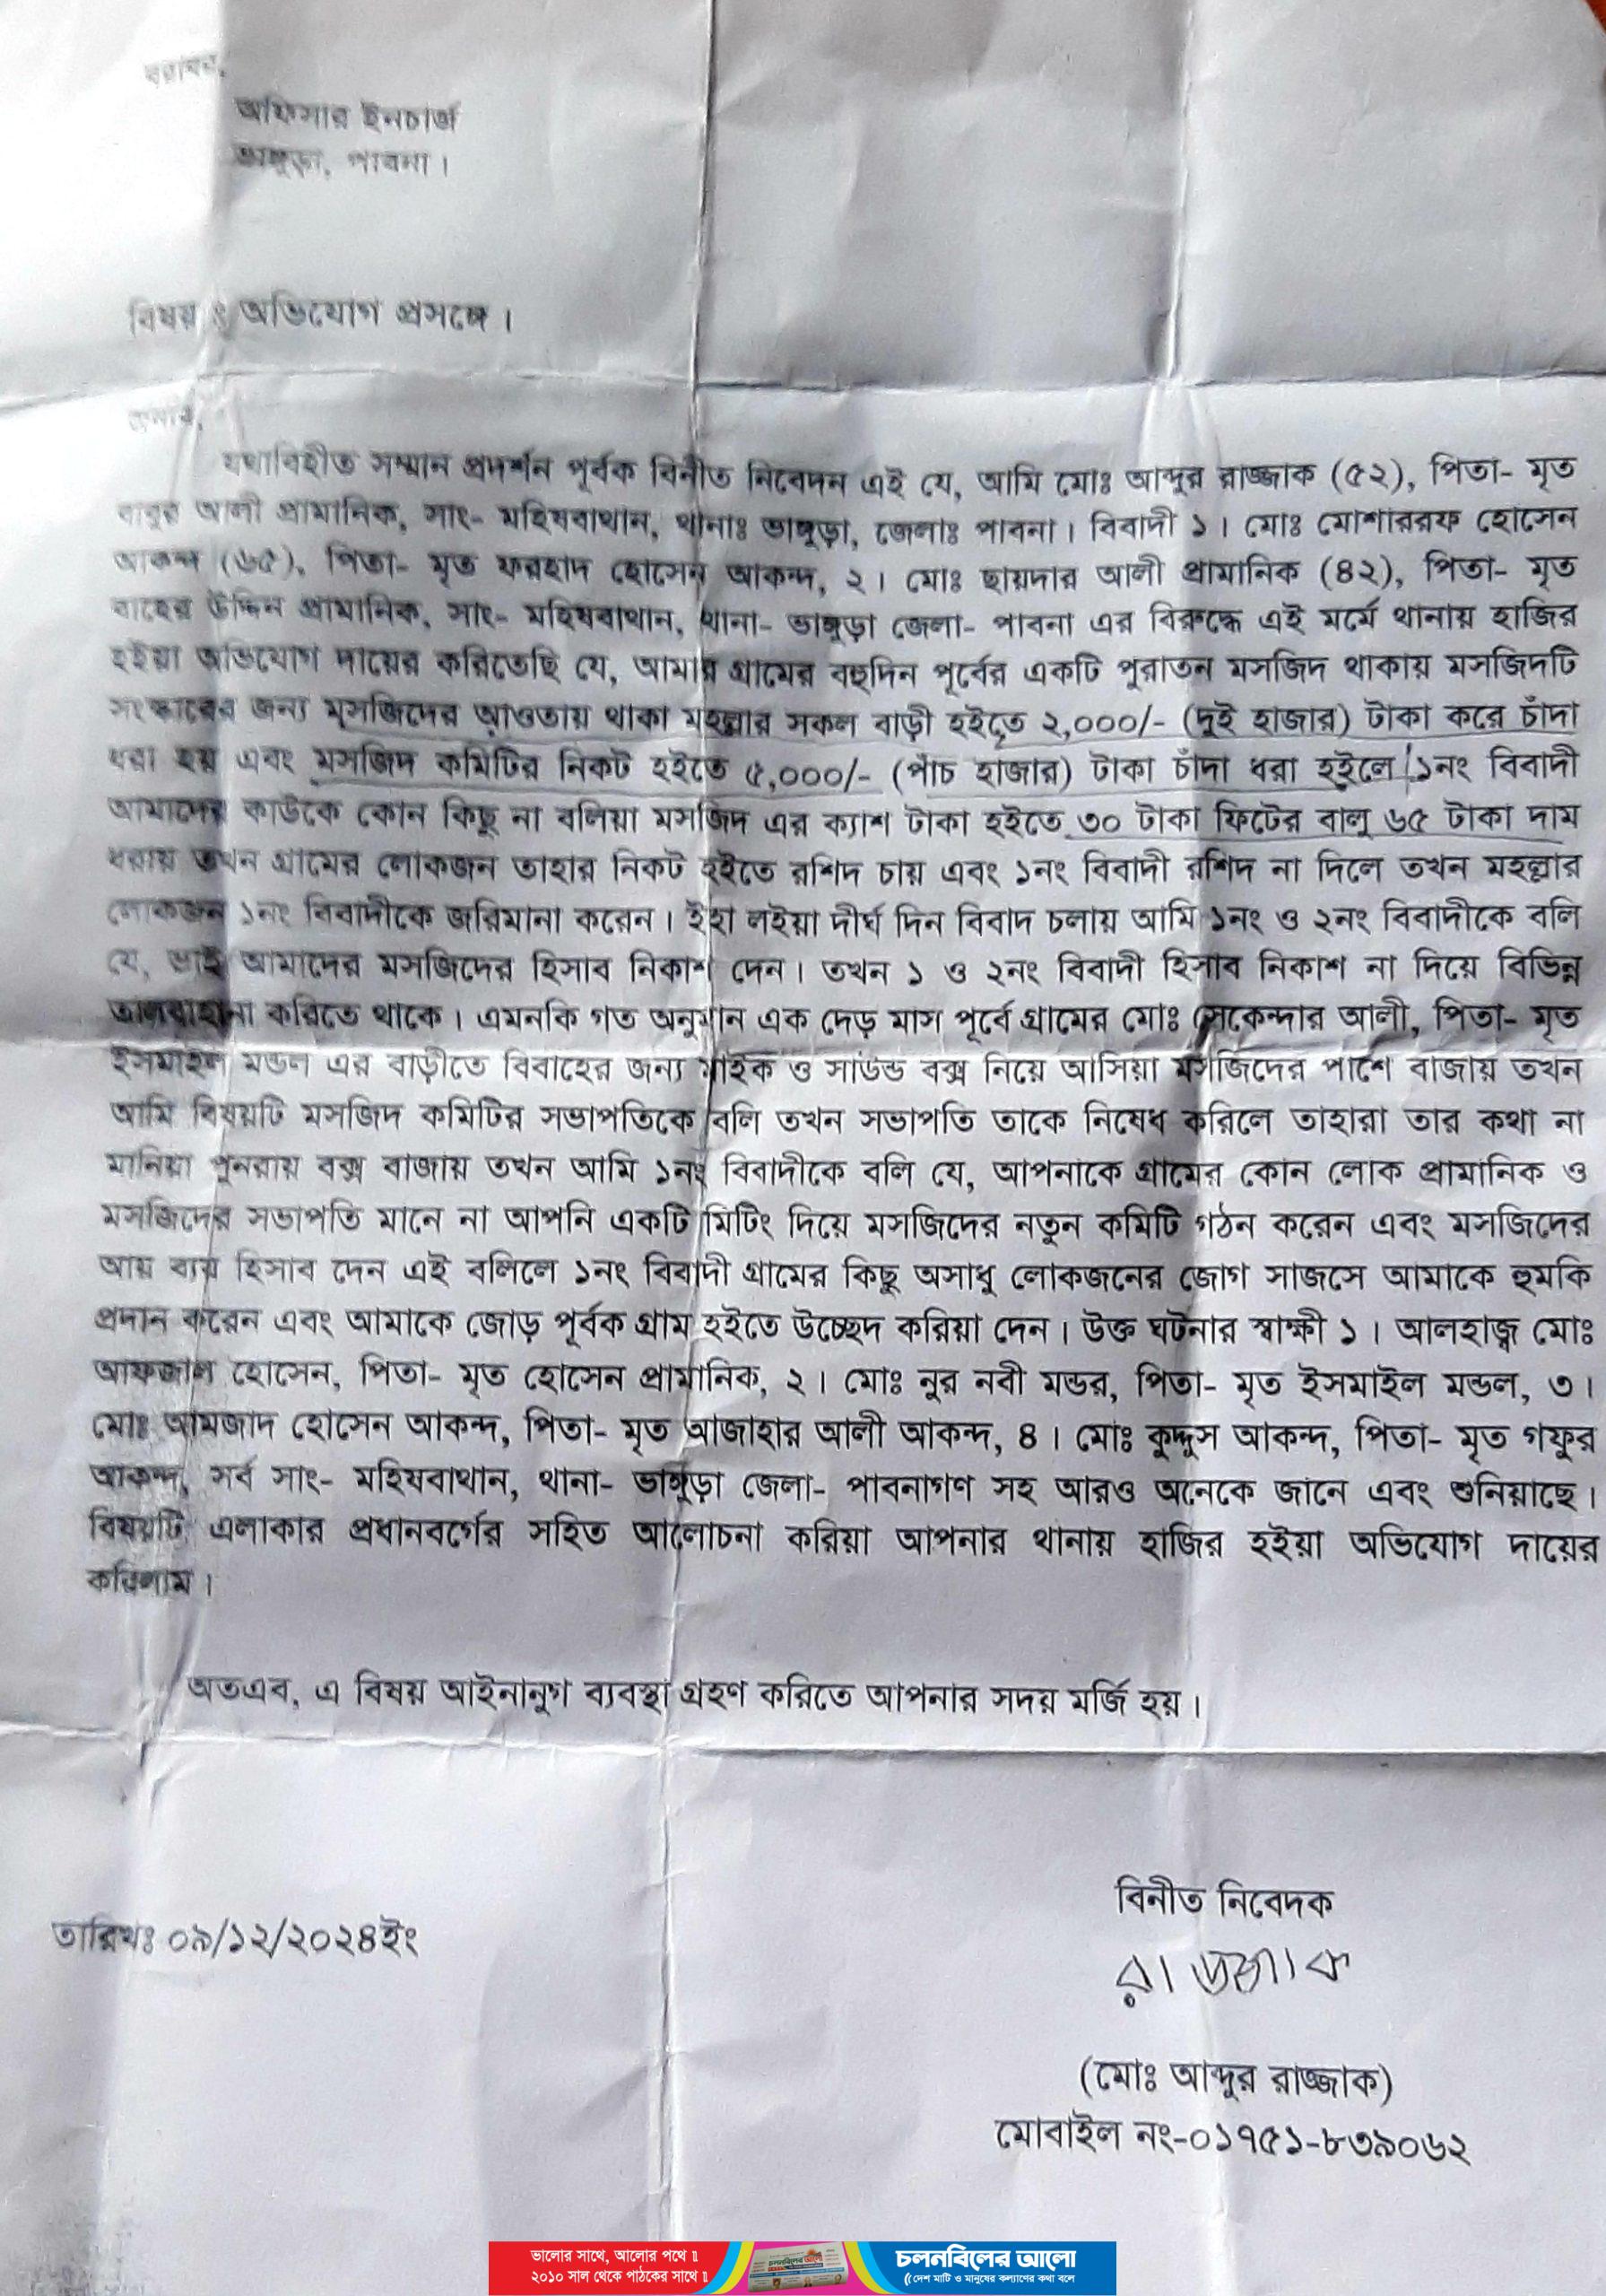 বরাবর,
অফিসার ইনচার্জ
ভাঙ্গুড়া, পাবনা।
বিষয় ঃ অভিযোগ প্রসঙ্গে।
জনাব,
যথাবিহীত সম্মান প্রদর্শন পূর্বক বিনীত নিবেদন এই যে, আমি মোঃ আব্দুর রাজ্জাক (৫২), পিতা- মৃত
বাবুর আলী প্রামানিক, সাং- মহিষবাথান, থানাঃ ভাঙ্গুড়া, জেলাঃ পাবনা। বিবাদী ১। মোঃ মোশাররফ হোসেন
আকন্দ (৬৫), পিতা- মৃত ফরহাদ হোসেন আকন্দ, ২। মোঃ ছায়দার আলী প্রামানিক (৪২), পিতা- মৃত
বাহের উদ্দিন প্রামানিক, সাং- মহিষবাথান, থানা- ভাঙ্গুড়া জেলা- পাবনা এর বিরুদ্ধে এই মর্মে থানায় হাজির
হইয়া অভিযোগ দায়ের করিতেছি যে, আমার গ্রামের বহুদিন পূর্বের একটি পুরাতন মসজিদ থাকায় মসজিদটি
সংস্কারের জন্য মসজিদের আওতায় থাকা মহল্লার সকল বাড়ী হইতে ২,০০০/- (দুই হাজার) টাকা করে চাঁদা
ধরা হয় এবং মসজিদ কমিটির নিকট হইতে ৫,০০০/- (পাঁচ হাজার) টাকা চাঁদা ধরা হইলে ১নং বিবাদী
আমাদের কাউকে কোন কিছু না বলিয়া মসজিদ এর ক্যাশ টাকা হইতে ৩০ টাকা ফিটের বালু ৬৫ টাকা দাম
ধরায় তখন গ্রামের লোকজন তাহার নিকট হইতে রশিদ চায় এবং ১নং বিবাদী রশিদ না দিলে তখন মহল্লার
লোকজন ১নং বিবাদীকে জরিমানা করেন। ইহা লইয়া দীর্ঘ দিন বিবাদ চলায় আমি ১নং ও ২নং বিবাদীকে বলি
যে, ভাই আমাদের মসজিদের হিসাব নিকাশ দেন। তখন ১ ও ২নং বিবাদী হিসাব নিকাশ না দিয়ে বিভিন্ন
তালবাহানা করিতে থাকে। এমনকি গত অনুমান এক দেড় মাস পূর্বে গ্রামের মোঃ সেকেন্দার আলী, পিতা- মৃত
ইসমাইল মন্ডল এর বাড়ীতে বিবাহের জন্য মাইক ও সাউন্ড বক্স নিয়ে আসিয়া মসজিদের পাশে বাজায় তখন
আমি বিষয়টি মসজিদ কমিটির সভাপতিকে বলি তখন সভাপতি তাকে নিষেধ করিলে তাহারা তার কথা না
মানিয়া পুনরায় বক্স বাজায় তখন আমি ১নং বিবাদীকে বলি যে, আপনাকে গ্রামের কোন লোক প্রামানিক ও
মসজিদের সভাপতি মানে না আপনি একটি মিটিং দিয়ে মসজিদের নতুন কমিটি গঠন করেন এবং মসজিদের
আয় ব্যয় হিসাব দেন এই বলিলে ১নং বিবাদী গ্রামের কিছু অসাধু লোকজনের জোগ সাজসে আমাকে হুমকি
প্রদান করেন এবং আমাকে জোড় পূর্বক গ্রাম হইতে উচ্ছেদ করিয়া দেন। উক্ত ঘটনার স্বাক্ষী ১। আলহাজ্ব মোঃ
আফজাল হোসেন, পিতা- মৃত হোসেন প্রামানিক, ২। মোঃ নুর নবী মন্ডর, পিতা- মৃত ইসমাইল মন্ডল, ৩।
মোঃ আমজাদ হোসেন আকন্দ, পিতা- মৃত আজাহার আলী আকন্দ, ৪। মোঃ কুদ্দুস আকন্দ, পিতা- মৃত গফুর
আকন্দ, সর্ব সাং- মহিষবাথান, থানা- ভাঙ্গুড়া জেলা- পাবনাগণ সহ আরও অনেকে জানে এবং শুনিয়াছে।
বিষয়টি এলাকার প্রধানবর্গের সহিত আলোচনা করিয়া আপনার থানায় হাজির হইয়া অভিযোগ দায়ের
করিলাম।
অতএব, এ বিষয় আইনানুগ ব্যবস্থা গ্রহণ করিতে আপনার সদয় মর্জি হয়।
বিনীত নিবেদক
তারিখঃ ০৯/১২/২০২৪ইং
রাজ্জাক
(মোঃ আব্দুর রাজ্জাক)
মোবাইল নং-০১৭৫১-৮৩৯০৬২
ভালোর সাথে, আলোর পথে॥
২০১০ সাল থেকে পাঠকের সাথে॥
চলনবিলের আলো
দেশ মাটি ও মানুষের কল্যাণের কথা বলে